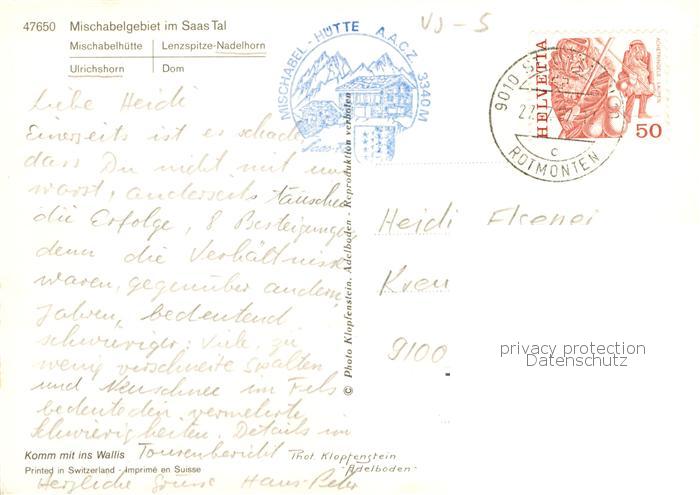 47650 Mischabelgebiet im Saas Tal
Mischabelhütte Lenzspitze-Nadelhorn
Ulrichshorn Dom
MISCHABEL-HÜTTE A.A.C.Z. 3340M
VJ-S
HELVETIA
50
9010
ROTMONTEN
c
Liebe Heidi
Einerseits ist es schade
dass Du nicht mit uns
warst, anderseits täuschen
die Erfolge, 8 Besteigungen
denn die Verhältnisse
waren, gegenüber andern
Jahren, bedeutend
schwieriger: Viele, zu
wenig verschneite Spalten
und Neuschnee im Fels
bedeuteten vermehrte
Schwierigkeiten. Details im
Tourenbericht
Herzliche Grüsse Hans-Peter
Heidi
9100
© Photo Klopfenstein, Adelboden - Reproduktion verboten
Komm mit ins Wallis
Phot. Klopfenstein
-Adelboden-
Printed in Switzerland - Imprimé en Suisse
privacy protection
Datenschutz